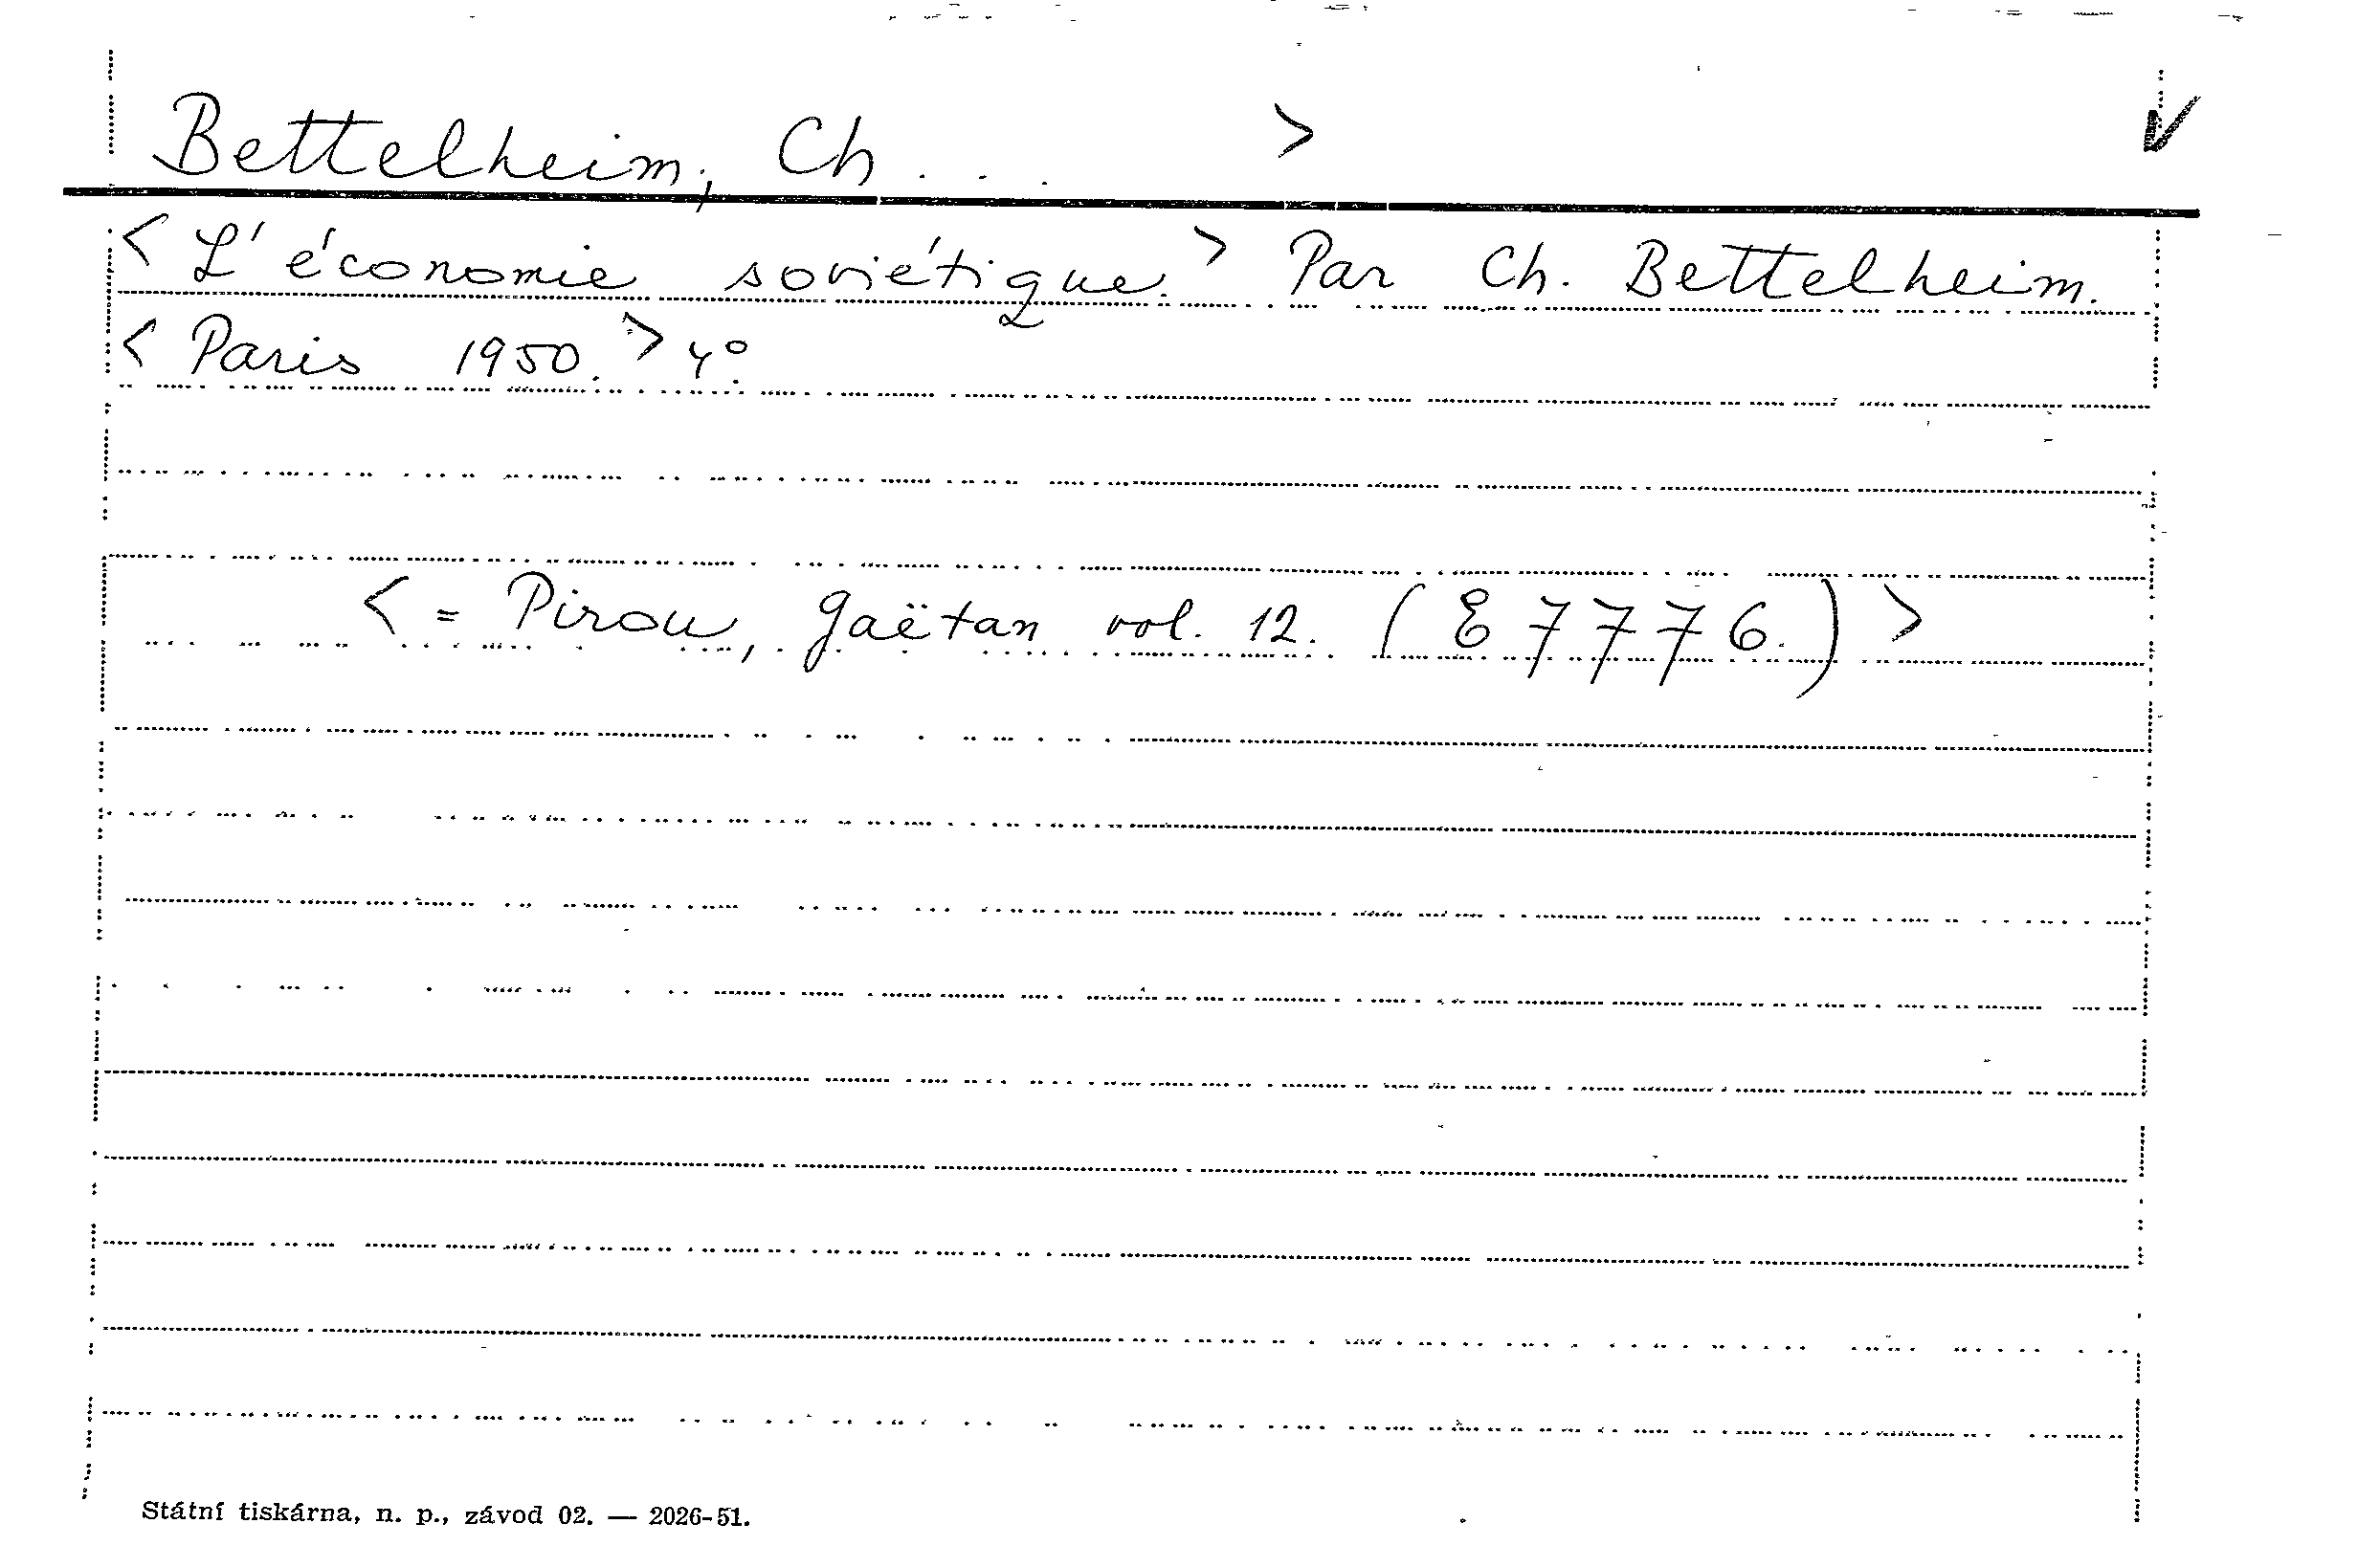 Bettelheim, Ch . . . >
< L'économie soviétique. > Par Ch. Bettelheim.
< Paris 1950. > 4°.
< = Pirou, Gaëtan vol. 12. (E 7776.) >
Státní tiskárna, n. p., závod 02. — 2026-51.